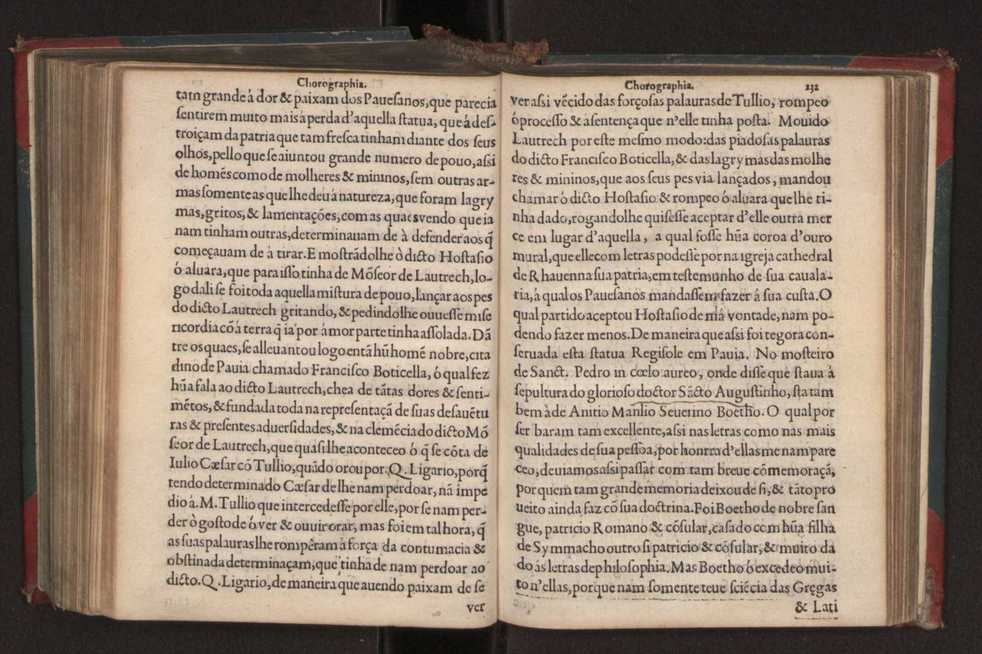 Chorographia.
tam grande á dor & paixam dos Pauesanos, que parecia
sentirem muito mais à perda d'aquella statua, que á desa
troiçam da patria que tam fresca tinham diante dos seus
olhos, pello que se aiuntou grande numero de pouo, assi
de homẽs como de molheres & mininos, sem outras ar-
mas somente as que lhe deu á natureza, que foram lagry
mas, gritos, & lamentações, com as quaes vendo que ia
nam tinham outras, determinauam de à defender aos q̃
começauam de à tirar. E mostrãdolhe ò dicto Hostasio
ó aluara, que para isso tinha de Mõseor de Lautrech, lo-
go dali se foi toda aquella mistura de pouo, lançar aos pes
do dicto Lautrech gritando, & pedindolhe ouuesse mise
ricordia cõ à terra q̃ ia por á mor parte tinha assolada. Dã
tre os quaes, se alleuantou logo entã hũ homẽ nobre, cita
dino de Pauia chamado Francisco Boticella, ó qual fez
hũa fala ao dicto Lautrech, chea de tãtas dores & senti-
mẽtos, & fundada toda na representaçã de suas desauẽtu
ras & presentes aduersidades, & na clemẽcia do dicto Mõ
seor de Lautrech, que quasi lhe aconteceo ó q̃ se cõta de
Iulio Cæsar cõ Tullio, quãdo orou por. Q. Ligario, porq̃
tendo determinado Cæsar de lhe nam perdoar, nã impe
dio á. M. Tullio que intercedesse por elle, por se nam per-
der ò gosto de ó ver & ouuir orar, mas foi em tal hora, q̃
as suas palauras lhe rompêram à força da contumacia &
obstinada determinaçam, que tinha de nam perdoar ao
dicto. Q. Ligario, de maneira que auendo paixam de se
ver
Chorographia. 232
ver assi vẽcido das forçosas palauras de Tullio, rompeo
ò processo & a sentença que n'elle tinha posta. Mouido
Lautrech por este mesmo modo: das piadosas palauras
do dicto Francisco Boticella, & das lagrymas das molhe
res & mininos, que aos seus pes via lançados, mandou
chamar ò dicto Hostasio & rompeo ó aluara que lhe ti-
nha dado, rogandolhe quisesse aceptar d'elle outra mer
ce em lugar d'aquella, a qual fosse hũa coroa d'ouro
mural, que elle com letras podesse por na igreja cathedral
de Rhauenna sua patria, em testemunho de sua caualà-
ria, á qual os Pauesanos mandassem fazer á sua custa. O
qual partido aceptou Hostasio de má vontade, nam po-
dendo fazer menos. De maneira que assi foi tegora con-
seruada esta statua Regisole em Pauia. No mosteiro
de Sanct. Pedro in cœlo aureo, onde disse que staua à
sepultura do glorioso doctor Sãcto Augustinho, sta tam
bem à de Anitio Manlio Seuerino Boetho. O qual por
ser baram tam excellente, assi nas letras como nas mais
qualidades de sua pessoa, por honrra d'ellas me nam pare
ceo, deuiamos assi passar com tam breue cõmemoraçã,
por quem tam grande memoria deixou de si, & tãto pro
ueito ainda faz cõ sua doctrina. Foi Boetho de nobre san
gue, patricio Romano & cõsular, casado com hũa filha
de Symmacho outro si patricio & cõsular, & muito da
do ás letras de philosophia. Mas Boetho ó excedeo mui-
to n'ellas, porque nam somente teue sciẽcia das Gregas
& Lati